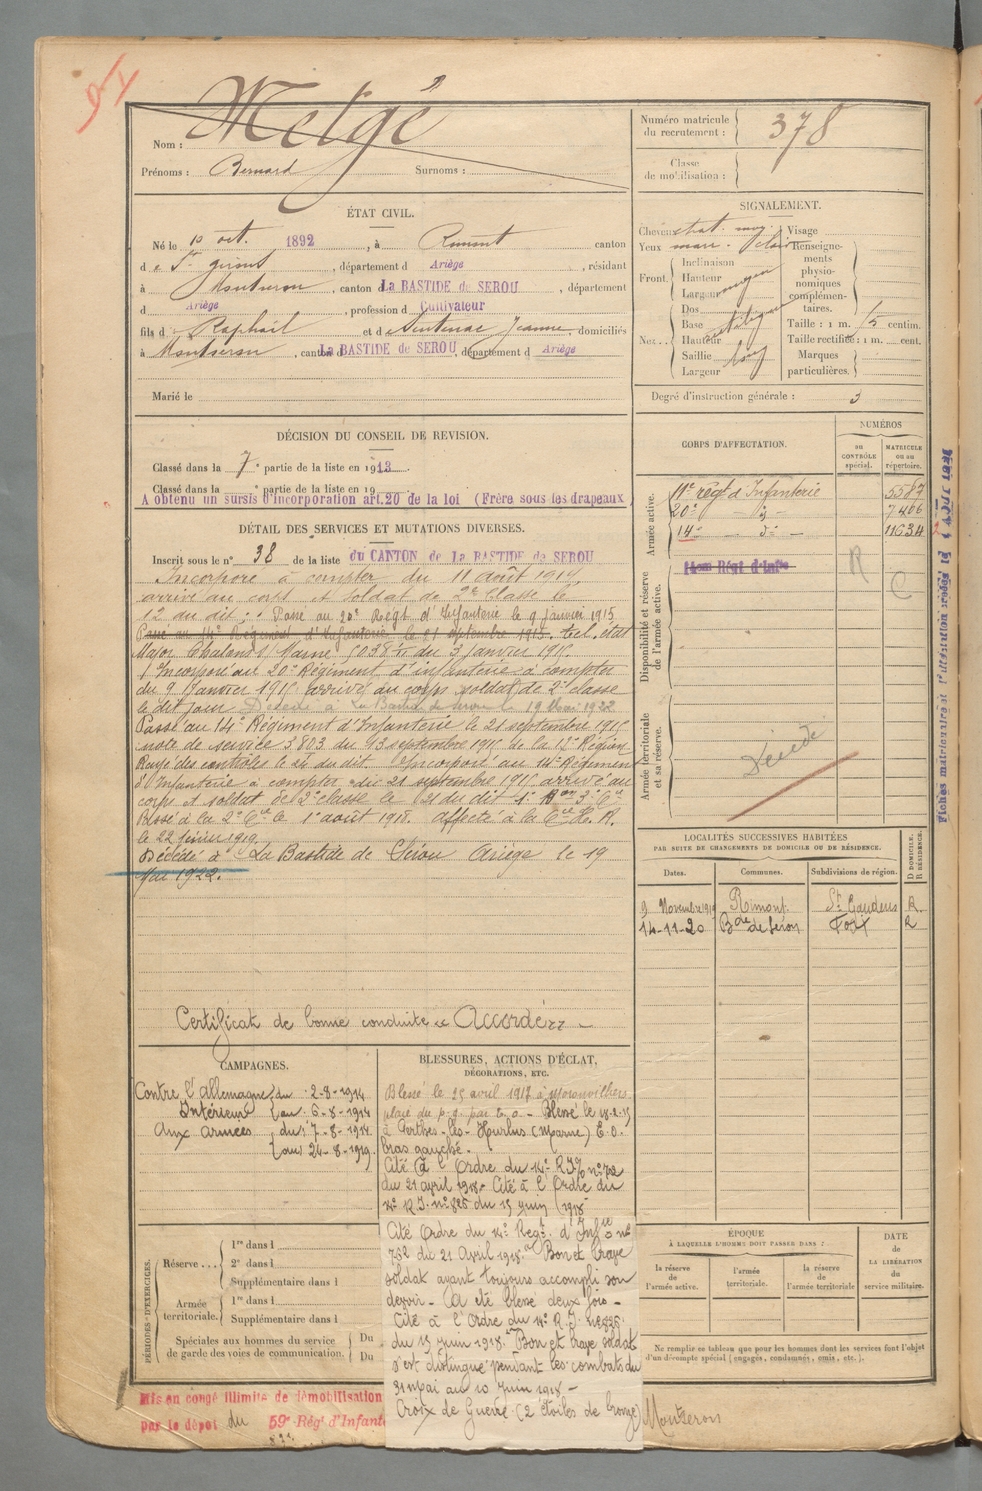 Melgé
Nom :
Prénoms : Bernard Surnoms :
Numéro matricule
du recrutement : 378
Classe
de mobilisation :
ÉTAT CIVIL.
Né le 10 oct. 1892, à Rimont canton
de St Girons, département d Ariège, résidant
à Montseron, canton d La BASTIDE de SEROU, département
d Ariège, profession d Cultivateur
fils d Raphaël et d Sentenac Jeanne, domiciliés
à Montseron, canton d La BASTIDE de SEROU, département d Ariège
Marié le
SIGNALEMENT.
Cheveux chat. moy. Visage
Yeux marr. clair
Renseignements physionomiques complémentaires.
Front. Inclinaison
Hauteur
Largeur moyen
Nez. Dos
Base
Hauteur
Saillie
Largeur
Taille : 1 m. 75 centim.
Taille rectifiée : 1 m. cent.
Marques
particulières.
Degré d'instruction générale : 3
DÉCISION DU CONSEIL DE REVISION.
Classé dans la 7e partie de la liste en 1913
Classé dans la e partie de la liste en 19
A obtenu un sursis d'incorporation art.20 de la loi (Frère sous les drapeaux)
DÉTAIL DES SERVICES ET MUTATIONS DIVERSES.
Inscrit sous le n° 38 de la liste du CANTON de La BASTIDE de SEROU
Incorporé à compter du 11 août 1914,
arrivé au corps et soldat de 2e classe le
12 du dit. Passé au 20e Régt d'Infanterie le 9 janvier 1915
Passé au 14e Régiment d'Infanterie le 21 septembre 1915. Tél. état
Major Chalons s/ Marne 5038 du 3 janvier 1915
Incorporé au 20e Régiment d'infanterie à compter
du 9 janvier 1915 arrivé au corps soldat de 2e classe
le dit jour Décédé à La Bastide de Serou le 19 Mai 1922
Passé au 14e Régiment d'Infanterie le 21 septembre 1915
note de service 3.803 du 13 septembre 1915 de la 17e Région
Rayé des contrôles le 24 du dit. Incorporé au 14e Régiment
d'Infanterie à compter du 21 septembre 1915 arrivé au
corps et soldat de 2e classe le 21 du dit
Passé à la 2e Cie le 1er août 1918. Affecté à la Cie de
le 22 février 1919
Décédé à La Bastide de Sérou Ariège le 19
Mai 1922.
Certificat de bonne conduite « Accordé »
CORPS D'AFFECTATION.
NUMÉROS
au CONTRÔLE spécial.
MATRICULE ou au répertoire.
Armée active.
11e régt d'Infanterie 5587
20e - d° - 7406
14e - d° - 11634
Disponibilité et réserve de l'armée active.
14eme Régt d'Infie
R
C
Armée territoriale et sa réserve.
Décédé
LOCALITÉS SUCCESSIVES HABITÉES
PAR SUITE DE CHANGEMENTS DE DOMICILE OU DE RÉSIDENCE.
Dates. Communes. Subdivisions de région. D DOMICILE. R RÉSIDENCE.
9 Novembre 1919 Rimont St Gaudens R
14-11-20 Bde de Serou Foix R
CAMPAGNES.
Contre l'Allemagne du 2-8-1914
Intérieur au 6-8-1914
Aux armées du 7-8-1914
au 24-8-1919.
BLESSURES, ACTIONS D'ÉCLAT,
DÉCORATIONS, ETC.
Blessé le 25 avril 1917 à Moronvilliers
plaie du p. g. par E. O. - Blessé le 18-2-15
à Perthes-les-Hurlus (Marne) E. O.
bras gauche.
Cité à l'Ordre du 14e R.I. n° 702
du 21 avril 1918 - Cité à l'Ordre du
14e R.I. n° 826 du 15 juin 1918
Cité Ordre du 14e Regt. d'Infie n°
752 du 21 Avril 1918. "Bon et brave
soldat ayant toujours accompli son
devoir - A été blessé deux fois -
Cité à l'Ordre du 14e R.I. n° 826
du 15 juin 1918. "Bon et brave soldat
s'est distingué pendant les combats du
31 mai au 10 juin 1918 -
Croix de Guerre (2 étoiles de bronze)
PÉRIODES D'EXERCICES.
Réserve...
1re dans l
2e dans l
Supplémentaire dans l
Armée
territoriale.
1re dans l
Supplémentaire dans l
Spéciales aux hommes du service
de garde des voies de communication. Du
Du
ÉPOQUE
À LAQUELLE L'HOMME DOIT PASSER DANS :
la réserve de l'armée active.
l'armée territoriale.
la réserve de l'armée territoriale
DATE
de
LA LIBÉRATION
du
service militaire.
Ne remplir ce tableau que pour les hommes dont les services font l'objet
d'un décompte spécial (engagés, condamnés, omis, etc.).
Mis en congé illimité de démobilisation
par le dépôt du 59e Régt d'Infant
Montseron